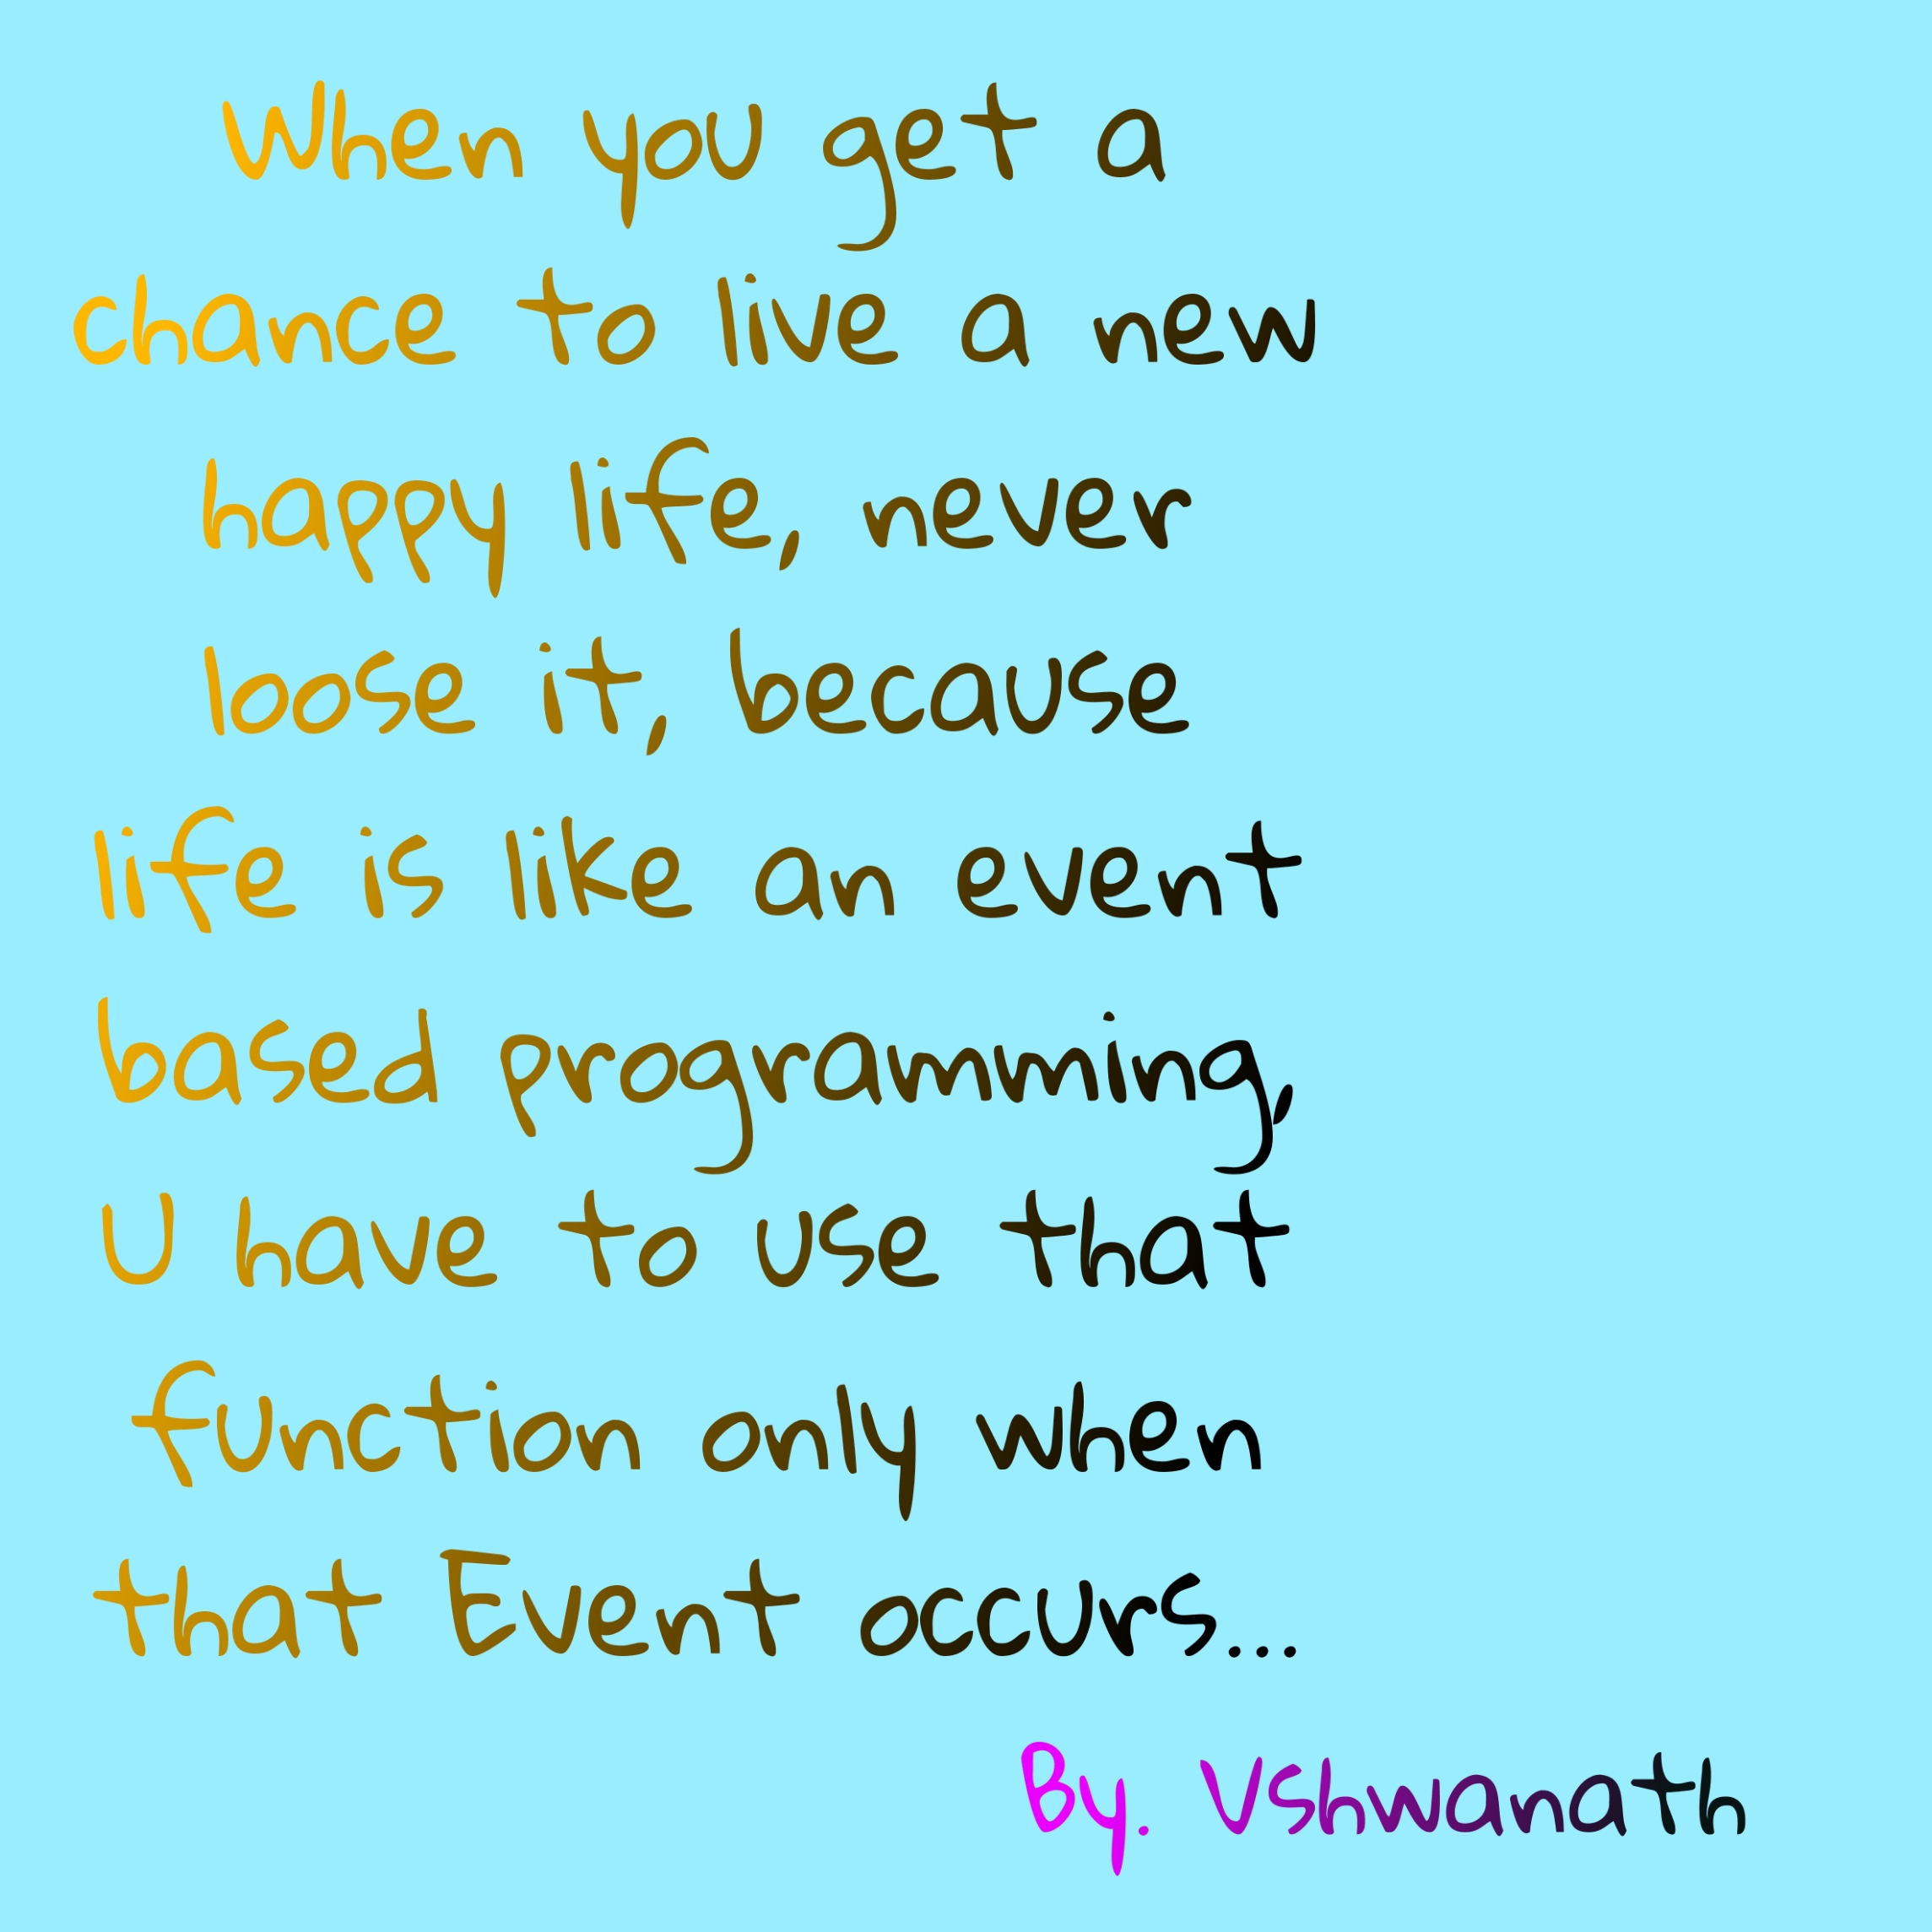 When you get a
chance to live a new
happy life, never
loose it, because
life is like an event
based programming,
U have to use that
function only when
that Event occurs...
By. Vshwanath